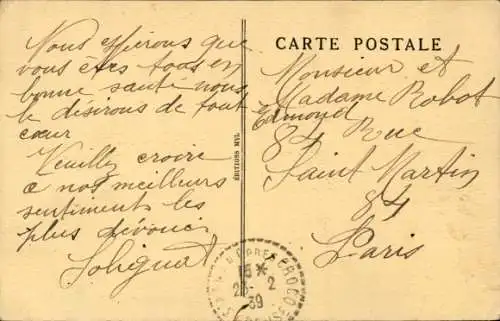 Nous espérons que
vous êtes tous en
bonne santé nous
le désirons de tout
cœur
Veuillez croire
a nos meilleurs
sentiments les
plus dévoués
Solignat
ÉDITIONS MYL
CARTE POSTALE
Monsieur et
Madame Robot
Edmond
84 Rue
Saint Martin
84
Paris
15 *
2
39